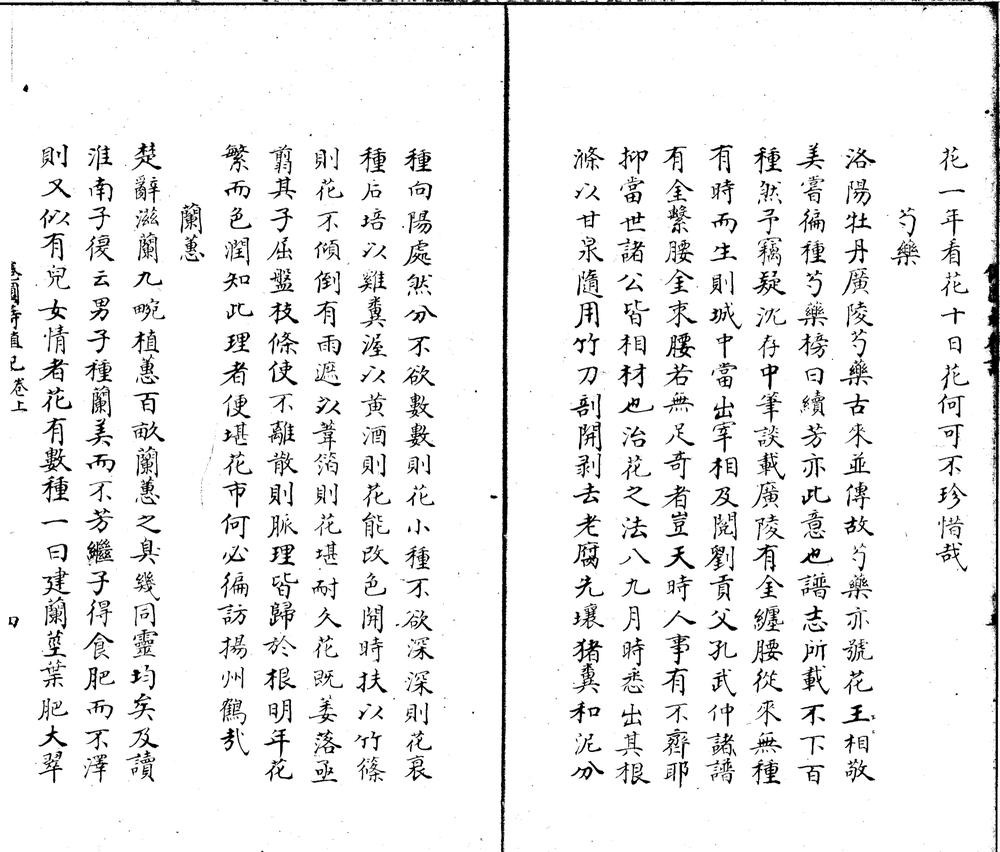 花一年看花十日花何可不珍惜哉
芍藥
洛陽牡丹廣陵芍藥古來並傳故芍藥亦號花王相敬
美嘗徧種芍藥榜曰續芳亦此意也譜志所載不下百
種然予竊疑沈存中筆談載廣陵有金纏腰從來無種
有時而生則城中當出宰相及閱劉貢父孔武仲諸譜
有金繫腰金束腰若無足奇者豈天時人事有不齊耶
抑當世諸公皆相材也治花之法八九月時悉出其根
滌以甘泉隨用竹刀剖開剥去老腐先壤猪糞和泥分
種向陽處然分不欲數數則花小種不欲深深則花衰
種后培以雞糞渥以黄酒則花能改色開時扶以竹篠
則花不傾倒有雨遮以葦箔則花堪耐久花既萎落亟
翦其子屈盤枝條使不離散則脈理皆歸於根明年花
繁而色潤知此理者便堪花市何必徧訪揚州鶴哉
蘭蕙
楚辭滋蘭九畹植蕙百畝蘭蕙之臭幾同靈均矣及讀
淮南子復云男子種蘭美而不芳繼子得食肥而不澤
則又似有兒女情者花有數種一曰建蘭莖葉肥大翠
植記卷上
四